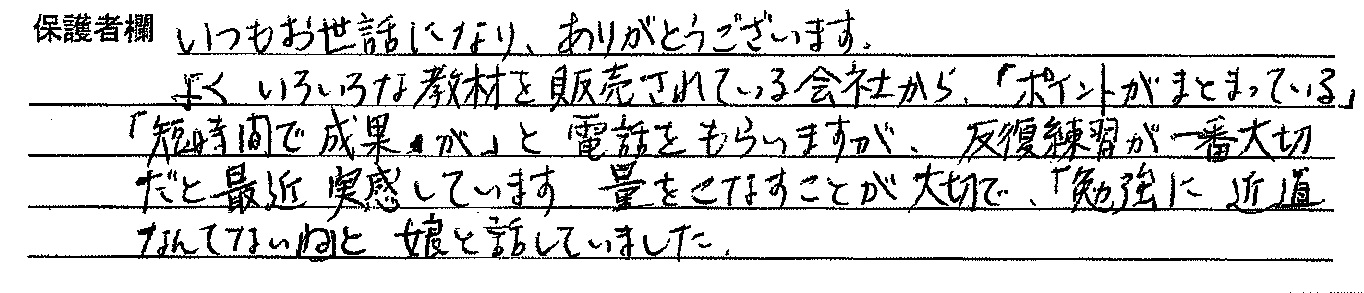 保護者欄 いつもお世話になり、ありがとうございます。
よく いろいろな教材を販売されている会社から、「ポイントがまとまっている」
「短時間で成果が」と電話をもらいますが、反復練習が一番大切
だと最近実感しています 量をこなすことが大切で、「勉強に近道
なんてないね」と娘と話していました。